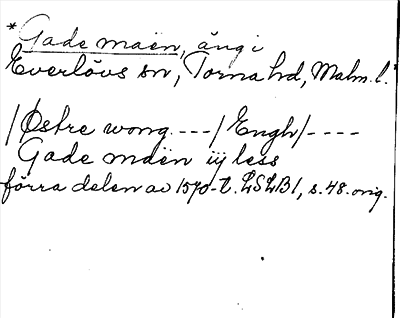 *Gade maen, äng i
Everlövs sn, Torna hd, Malm. l.
/Østre wong ---/Engh/----
Gade maen iij less
förra delen av 1570-t. LSLB1, s. 48. orig.